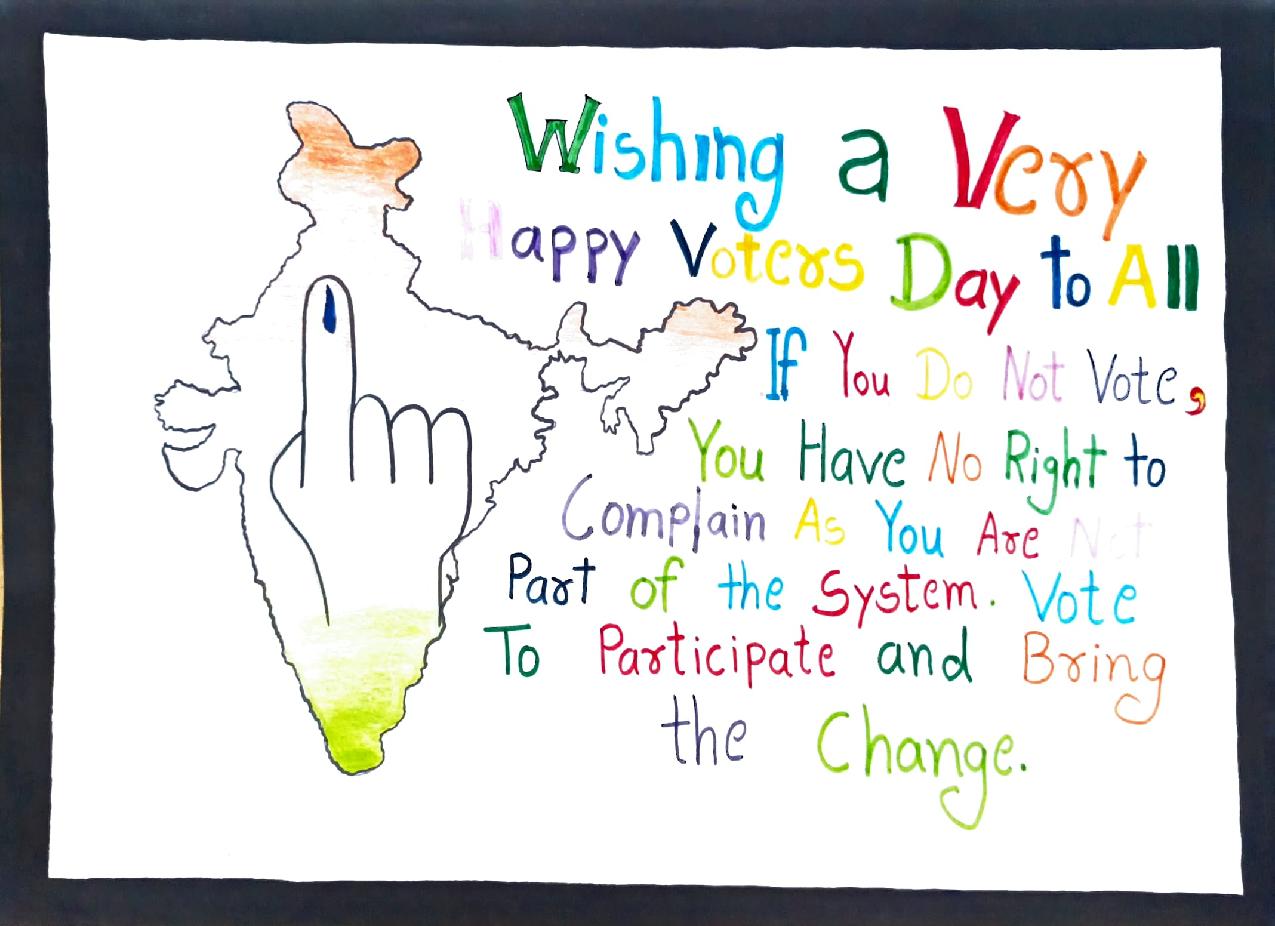 Wishing a Very
Happy Voters Day to All
If You Do Not Vote,
You Have No Right to
Complain As You Are Not
Part of the System. Vote
To Participate and Bring
the Change.